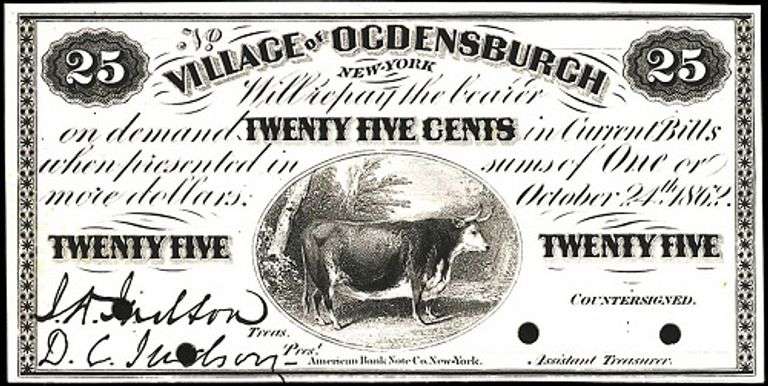 No
25 VILLAGE of OGDENSBURGH 25
NEW-YORK
Will repay the bearer
on demand TWENTY FIVE CENTS in Current Bills
when presented in sums of One or
more dollars. October 24th 1862.
TWENTY FIVE TWENTY FIVE
COUNTERSIGNED.
Judson
Treas.
D. C. Judson Prest
American Bank Note Co. New-York. Assistant Treasurer.